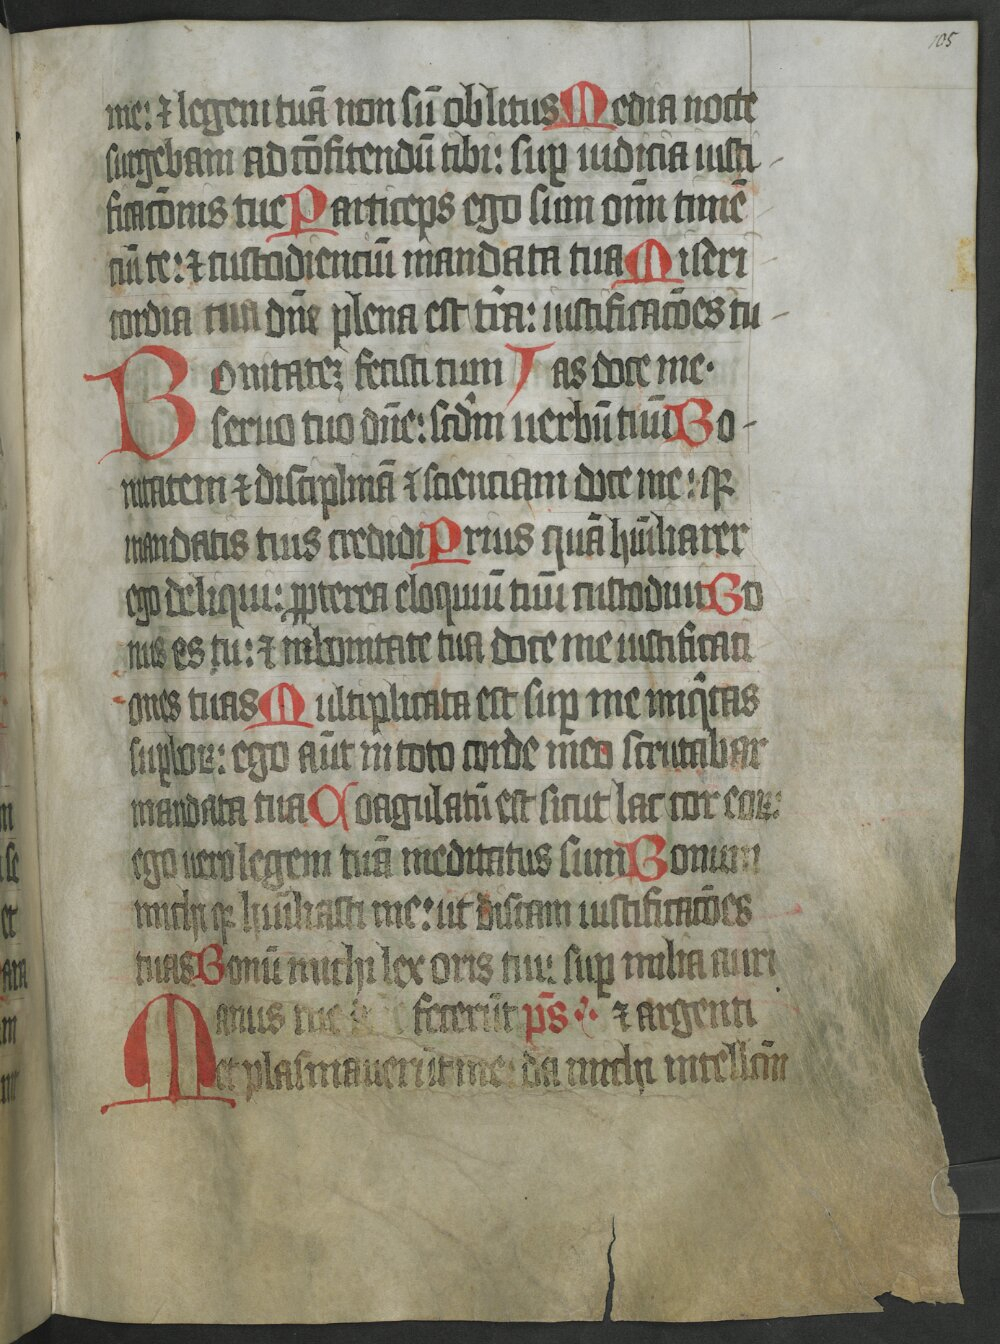 105
me: ⁊ legem tuā non sū oblitus Media nocte
surgebam ad cōfitendū tibi: sup̲ iudicia iusti
ficacōnis tue Particeps ego sum oīm timē
ciū te: ⁊ custodienciū mandata tua Miseri
cordia tua dn̄e plena est t̄ra: iustificacōes tu
Bonitatēz fecisti cum Jas doce me.
seruo tuo dn̄e: scd̄m uerbū tuū Bo-
nitatem ⁊ disciplinā ⁊ scienciam doce me: q̲
mandatis tuis credidi Prius quā hūiliarer
ego deliqui: p̲p̲terea eloquiū tuū custodiui Bo
nus es tu: ⁊ in bonitate tua doce me iustificati
ones tuas Multiplicata est sup̲ me iniq̄tas
sup̲boꝝ: ego aūt in toto corde meo scrutabar
mandata tua Coagulatū est sicut lac cor eoꝝ:
ego vero legem tuā meditatus sum Bonum
michi q̲ hūiliasti me: ut discam iustificacōes
tuas Bonū michi lex oris tui: sup̲ milia auri
Manus tue fecerūt p̄s ⁊ argenti
et plasmauerūt me: da michi intellcm̄